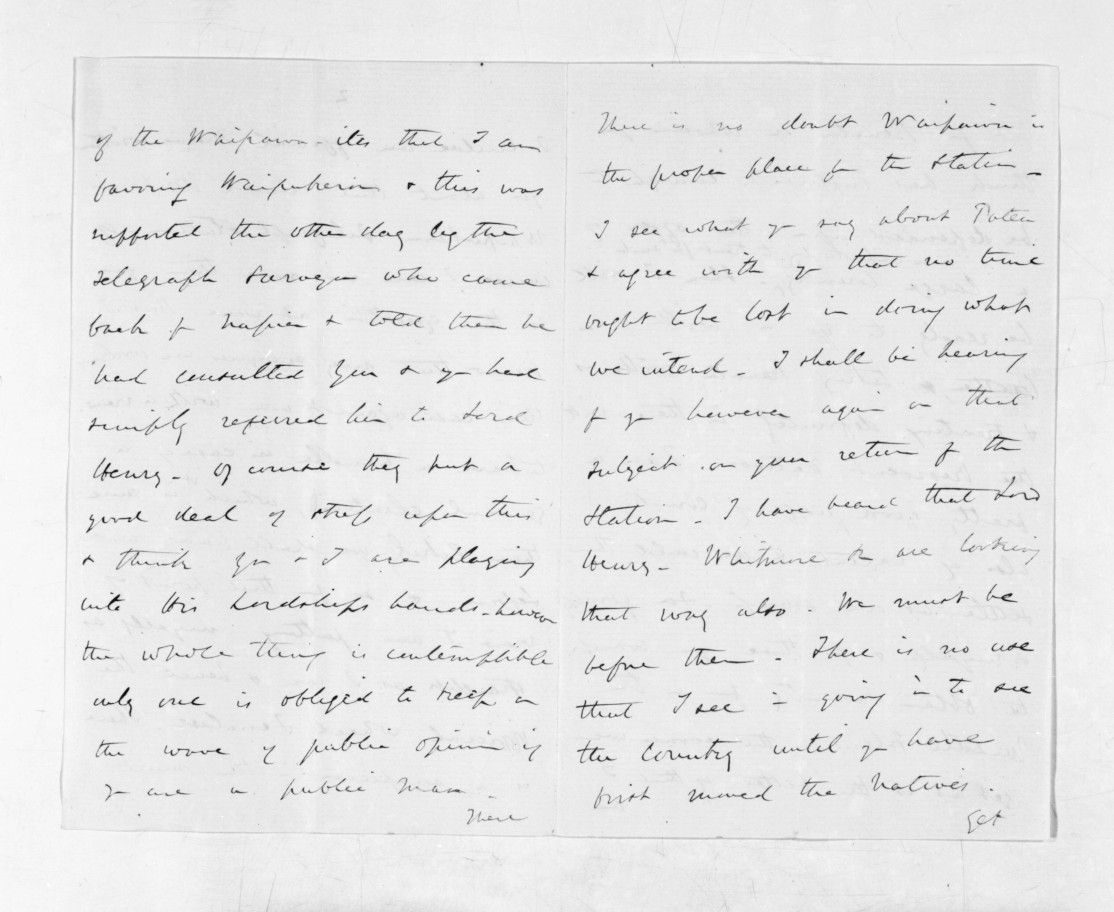 of the Waipawa-ites that I am
favoring Waipukurau & this was
supported the other day by the
telegraph Surveyor who came
back fr Napier & told them he
had consulted you & you had
simply referred him to Lord
Henry - Of course they put a
good deal of stress upon this
& think you & I are playing
into His Lordships hands - however
the whole thing is contemptible
only one is obliged to keep on
the wave of public opinion if
you are a public man -
There
There is no doubt Waipawa is
the proper place for the Station -
I see what you say about Patea
& agree with you that no time
ought to be lost in doing what
we intend - I shall be hearing
fr you however again on that
subject on your return fr the
Station - I have heard that Lord
Henry - Whitmore & are looking
that way also - We must be
before them - There is no use
that I see in going in to see
the Country until you have
first moved the Natives.
Get